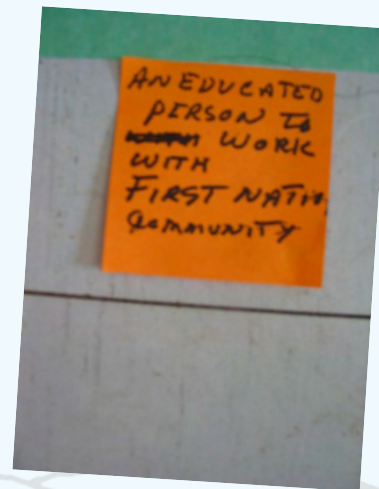 AN EDUCATED
PERSON To
WORK
WITH
FIRST NATION
COMMUNITY